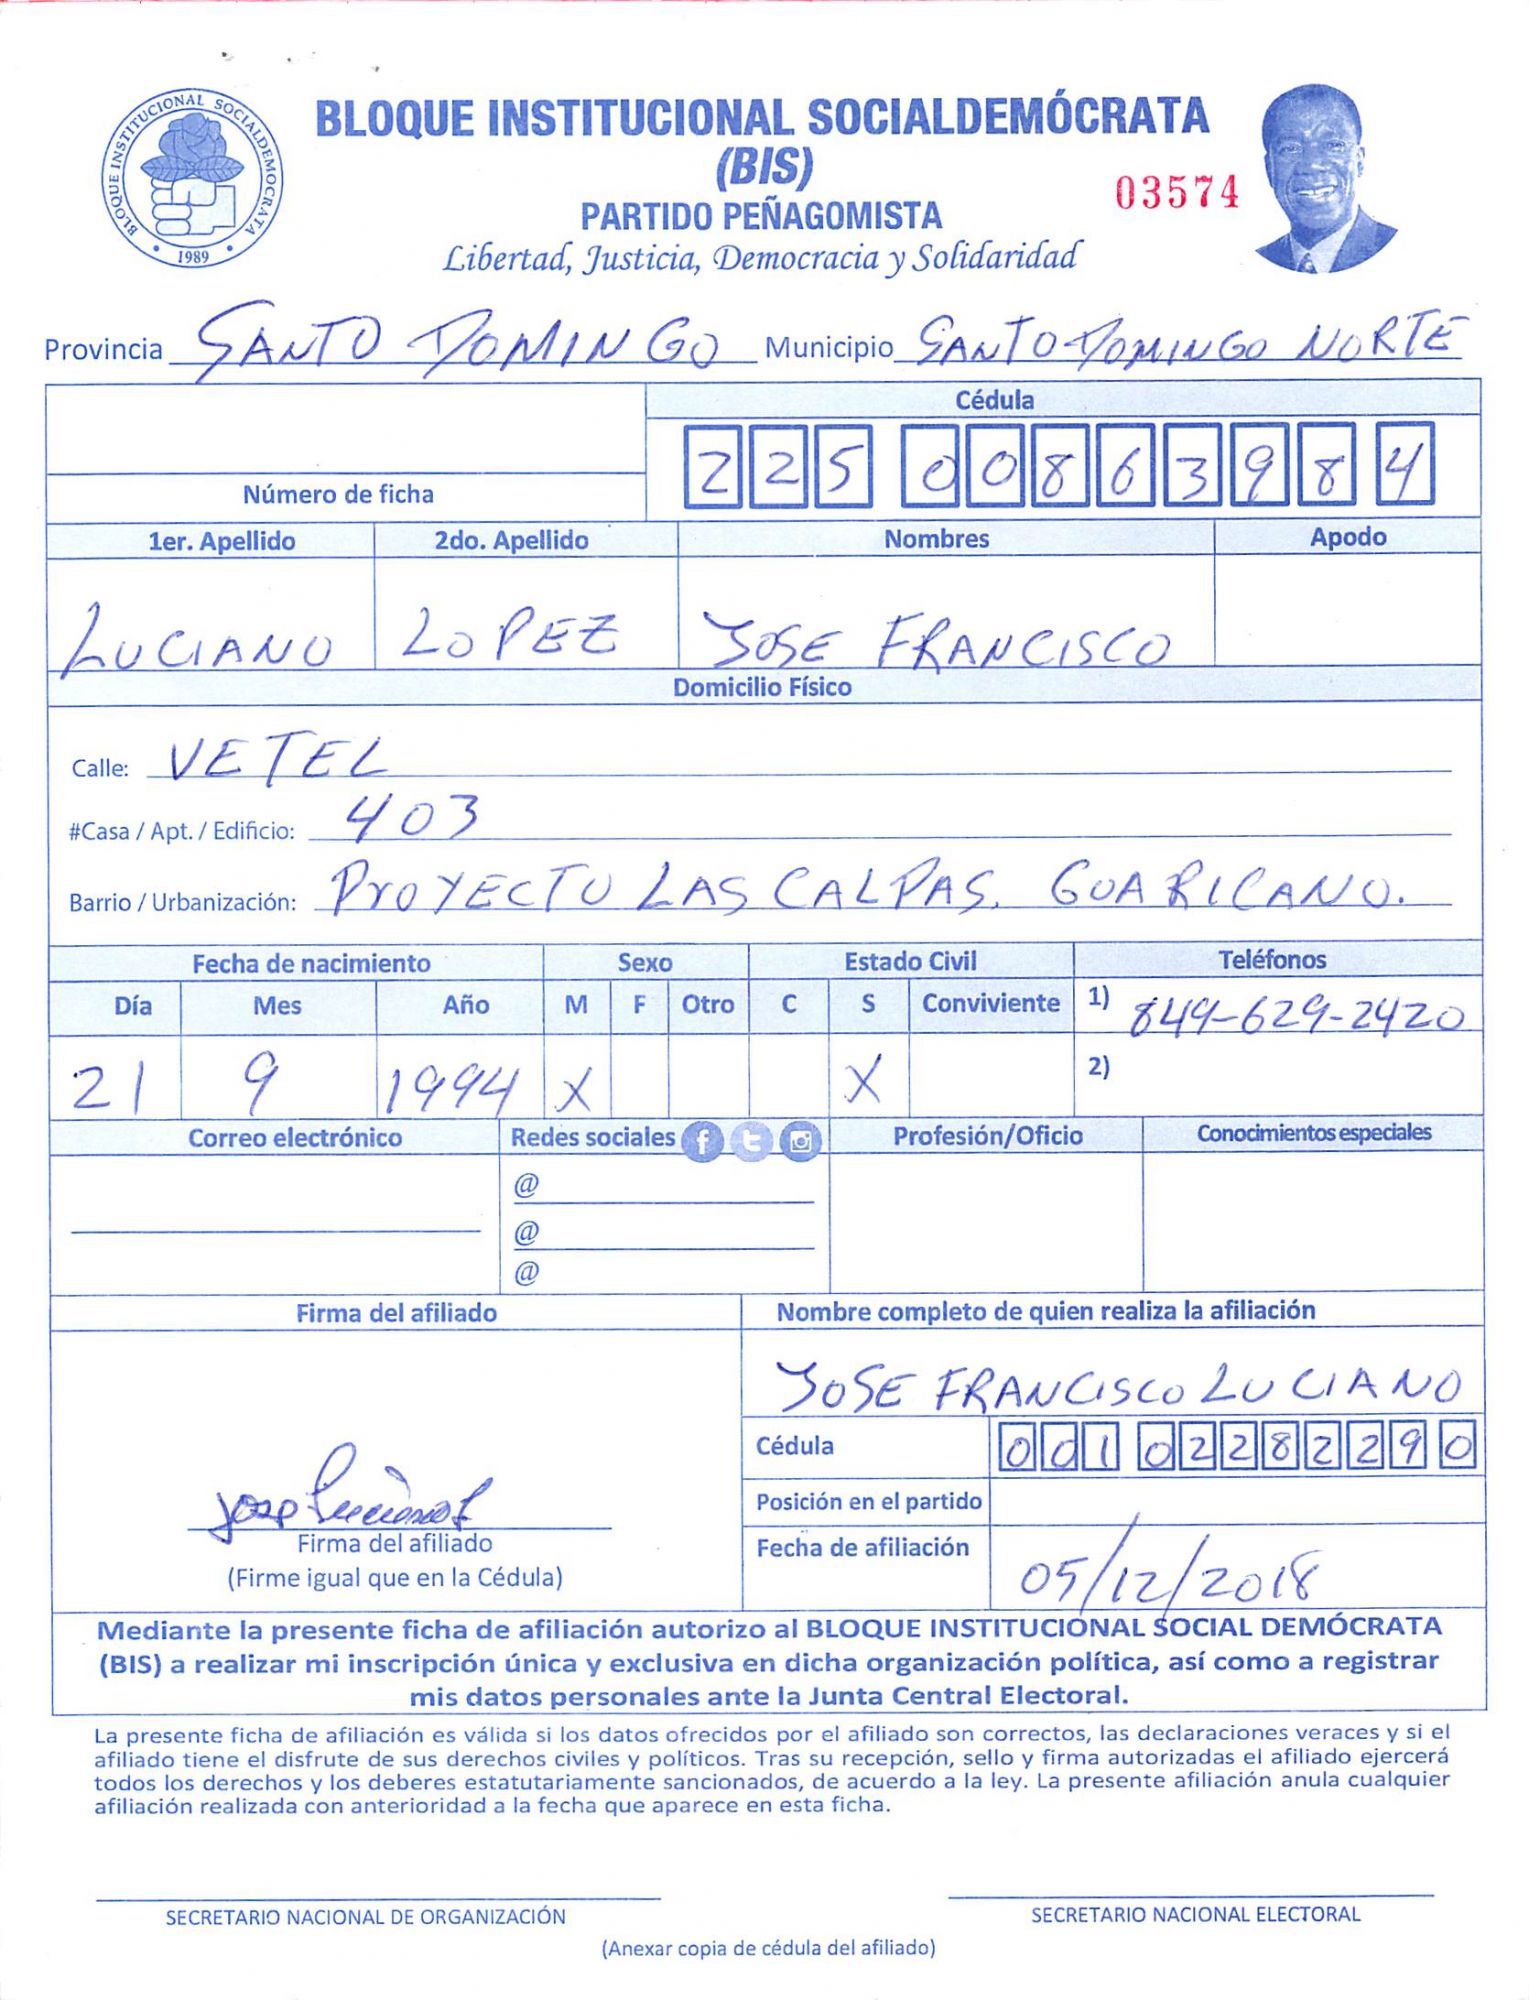 BLOQUE INSTITUCIONAL SOCIALDEMOCRATA
1989
BLOQUE INSTITUCIONAL SOCIALDEMÓCRATA
(BIS)
03574
PARTIDO PEÑAGOMISTA
Libertad, Justicia, Democracia y Solidaridad
Provincia SANTO DOMINGO Municipio SANTO DOMINGO NORTE
Cédula
225 0086398 4
Número de ficha
1er. Apellido 2do. Apellido Nombres Apodo
LUCIANO LOPEZ JOSE FRANCISCO
Domicilio Físico
Calle: VETEL
#Casa / Apt. / Edificio: 403
Barrio / Urbanización: PROYECTO LAS CALPAS. GUARICANO.
Fecha de nacimiento Sexo Estado Civil Teléfonos
Día Mes Año M F Otro C S Conviviente 1) 849-629-2420
21 9 1994 X X 2)
Correo electrónico Redes sociales Profesión/Oficio Conocimientos especiales
@
@
@
Firma del afiliado Nombre completo de quien realiza la afiliación
JOSE FRANCISCO LUCIANO
Cédula 001 0228229 0
Posición en el partido
Jose Luciano L
Firma del afiliado
(Firme igual que en la Cédula)
Fecha de afiliación 05/12/2018
Mediante la presente ficha de afiliación autorizo al BLOQUE INSTITUCIONAL SOCIAL DEMÓCRATA
(BIS) a realizar mi inscripción única y exclusiva en dicha organización política, así como a registrar
mis datos personales ante la Junta Central Electoral.
La presente ficha de afiliación es válida si los datos ofrecidos por el afiliado son correctos, las declaraciones veraces y si el
afiliado tiene el disfrute de sus derechos civiles y políticos. Tras su recepción, sello y firma autorizadas el afiliado ejercerá
todos los derechos y los deberes estatutariamente sancionados, de acuerdo a la ley. La presente afiliación anula cualquier
afiliación realizada con anterioridad a la fecha que aparece en esta ficha.
SECRETARIO NACIONAL DE ORGANIZACIÓN SECRETARIO NACIONAL ELECTORAL
(Anexar copia de cédula del afiliado)